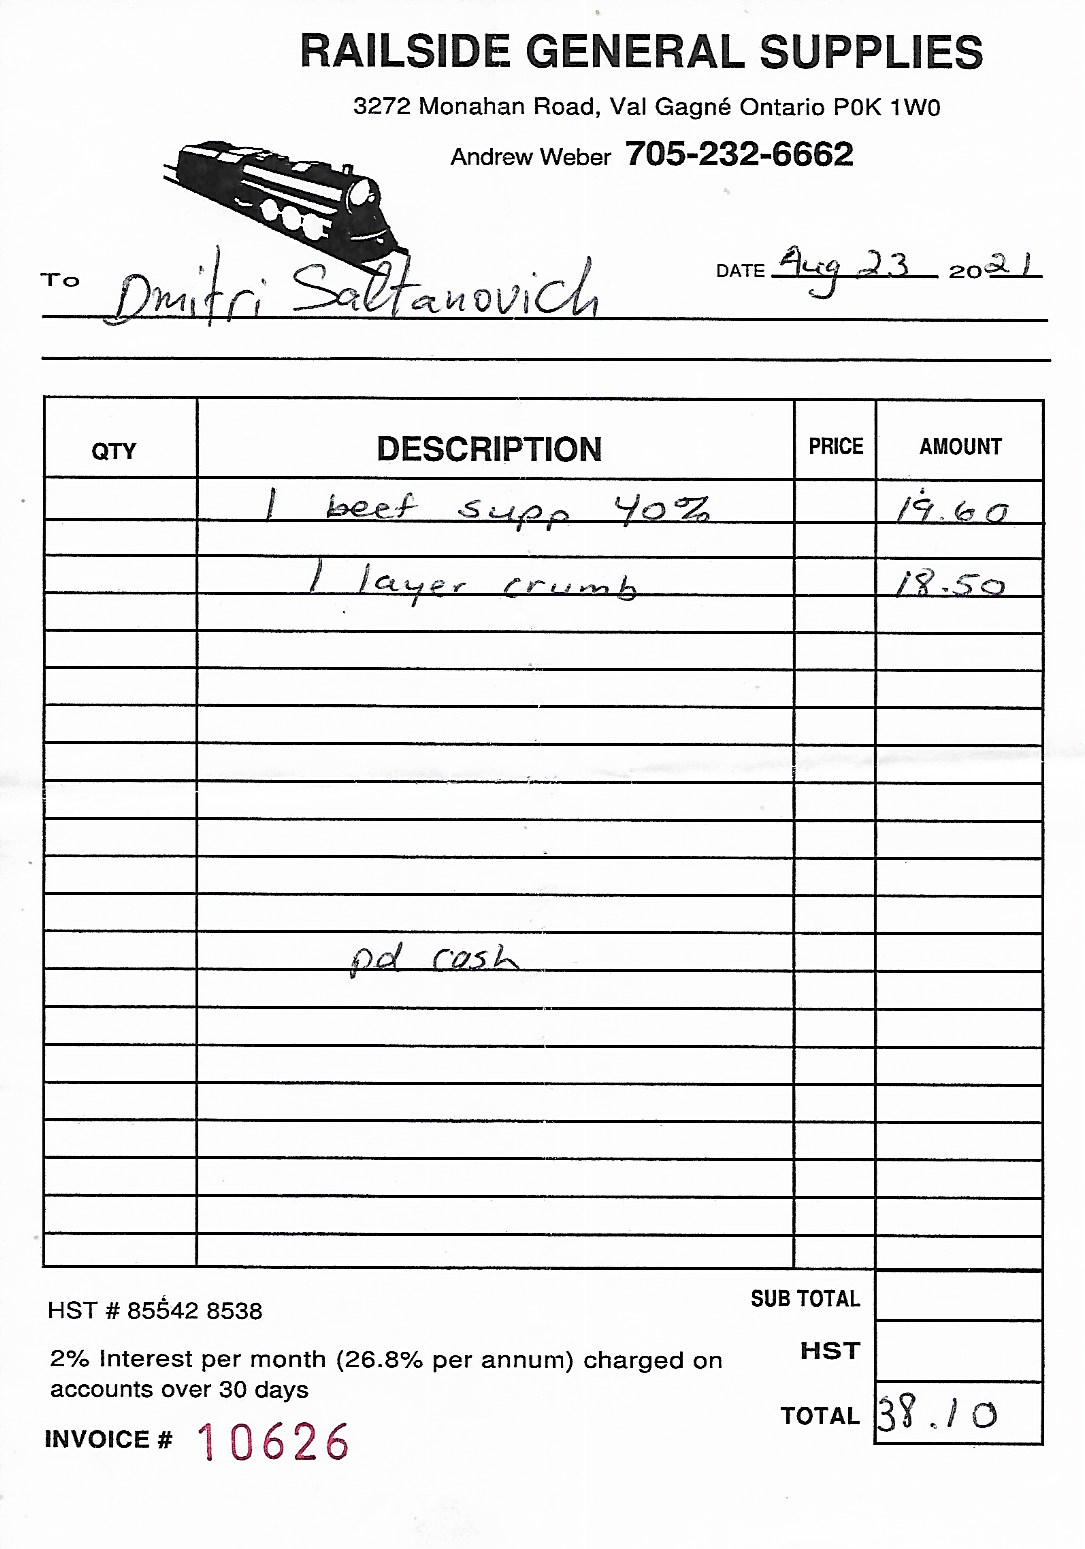 RAILSIDE GENERAL SUPPLIES
3272 Monahan Road, Val Gagné Ontario P0K 1W0
Andrew Weber 705-232-6662
TO Dmitri Saltanovich
DATE Aug 23 2021
QTY DESCRIPTION PRICE AMOUNT
1 beef supp 40% 19.60
1 layer crumb 18.50
pd cash
SUB TOTAL
HST # 85542 8538
HST
2% Interest per month (26.8% per annum) charged on
accounts over 30 days
TOTAL 38.10
INVOICE # 10626